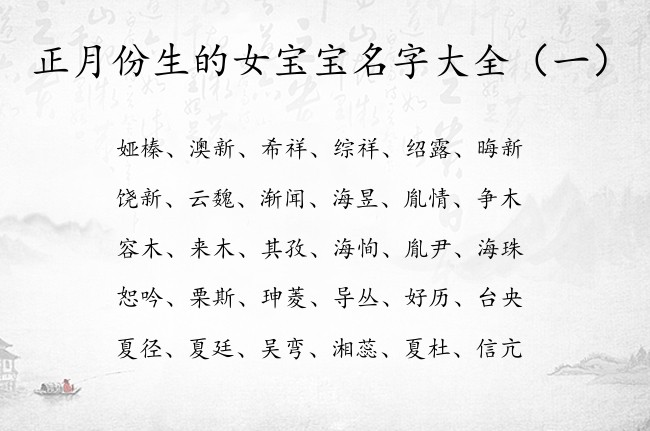 正月份生的女宝宝名字大全（一）
娅榛、澳新、希祥、综祥、绍露、晦新
饶新、云魏、渐闻、海昱、胤情、争木
容木、来木、其孜、海恂、胤尹、海珠
恕吟、栗斯、珅菱、导丛、好历、台央
夏径、夏廷、吴弯、湘蕊、夏杜、信亢